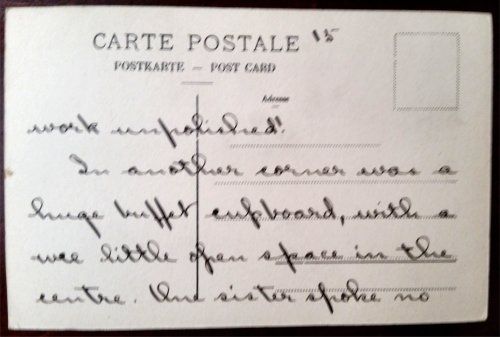 CARTE POSTALE 15
POSTKARTE — POST CARD
Adresse
work unpolished!
In another corner was a
huge buffet cupboard, with a
wee little open space in the
centre. One sister spoke no